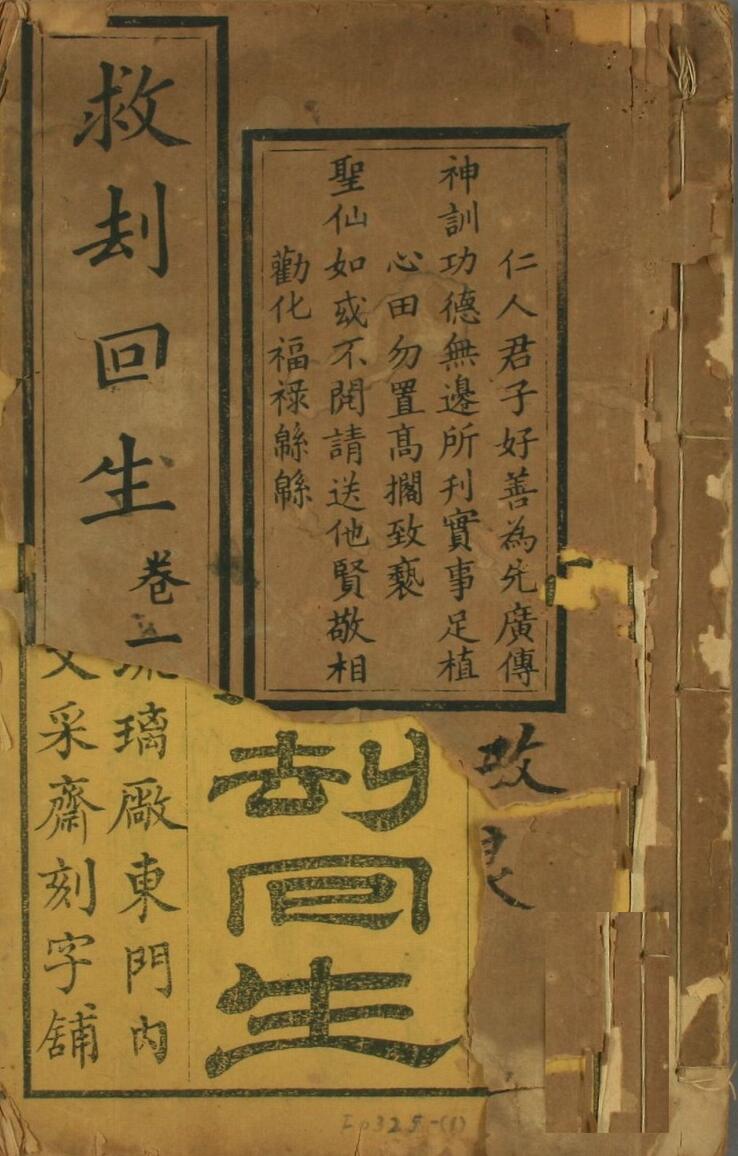 仁人君子好善為先廣傳
神訓功德無邊所刋實事足植
心田勿置髙擱致褻
聖仙如或不閱請送他賢敬相
勸化福祿緜緜
救刦回生 卷一
改
刦回生
琉璃廠東門內
文采齋刻字舖